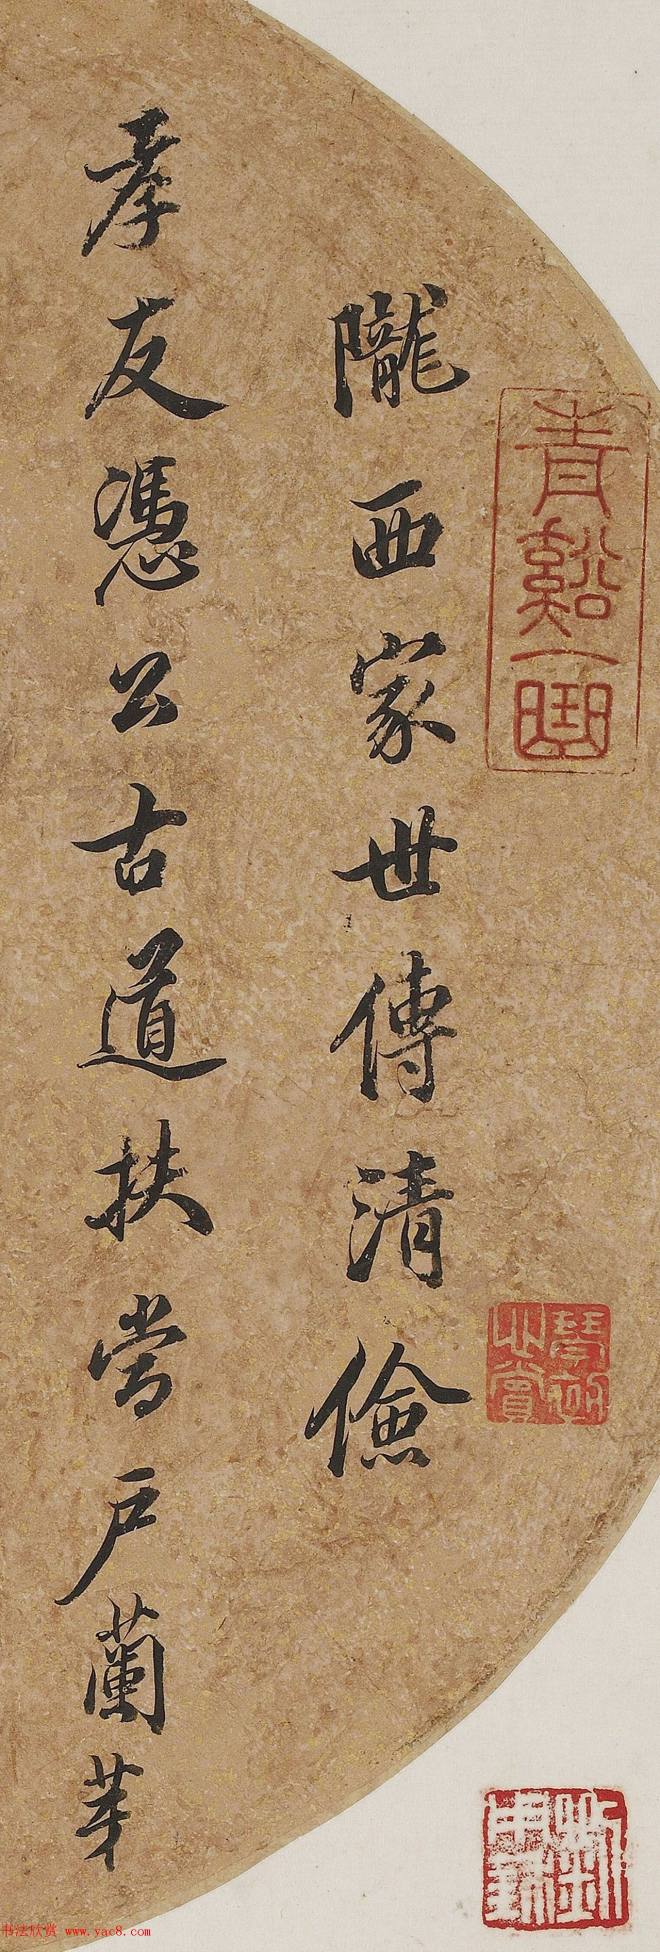 隴西家世傳清儉
孝友憑公古道扶當戶蘭芽
青谿一曲
琴研之賞
书法欣赏 www.yac8.com